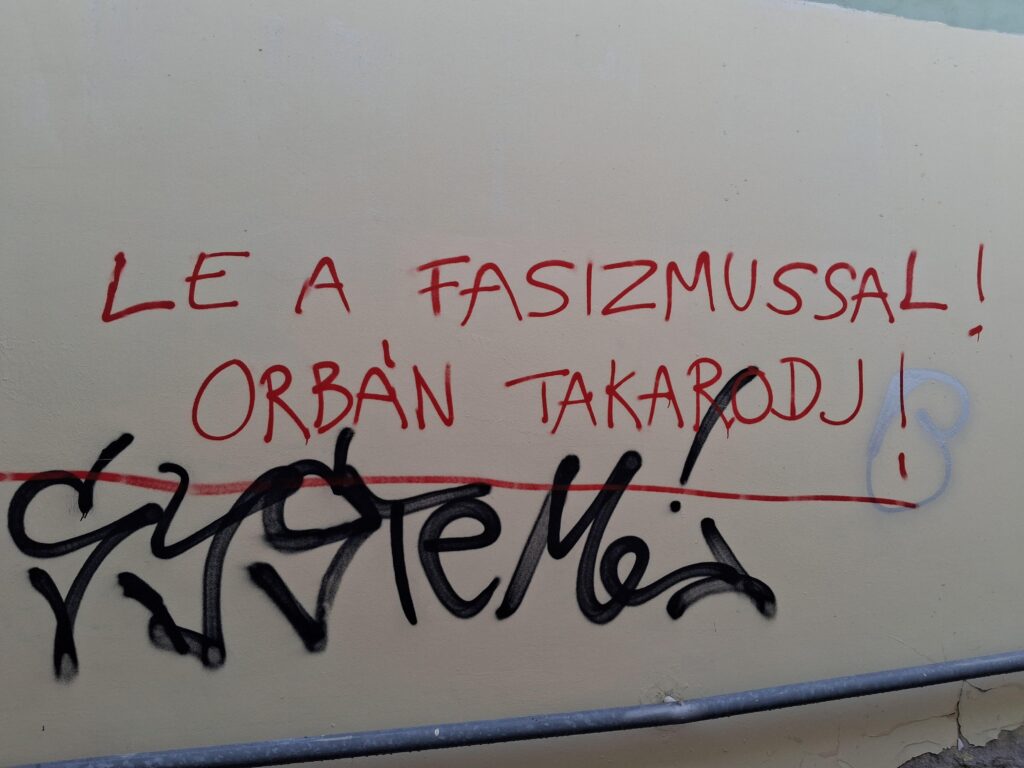 LE A FASIZMUSSAL!
ORBÁN TAKARODJ!